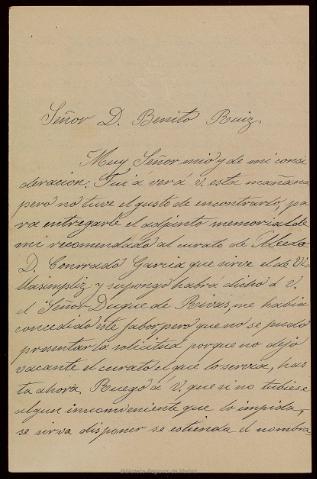 Señor D. Benito Ruiz.
Muy Señor mio y de mi consi
deracion: Fui á ver á V. esta mañana
pero no tuve el gusto de encontrarlo, pa
ra entregarle el adjunto memorial de
mi recomendado al curato de
D. Conrrado Garcia que sirve el de
y supongo habrá dicho á V.
el Señor Duque de Rivas, me habia
concedido este fabor pero que no se pudo
presentar la solicitud porque no dejó
vacante el curato el que lo servia, has
ta ahora. Ruego á V. que si no tubiese
algun inconveniente que lo impida,
se sirva disponer se estienda el nombra